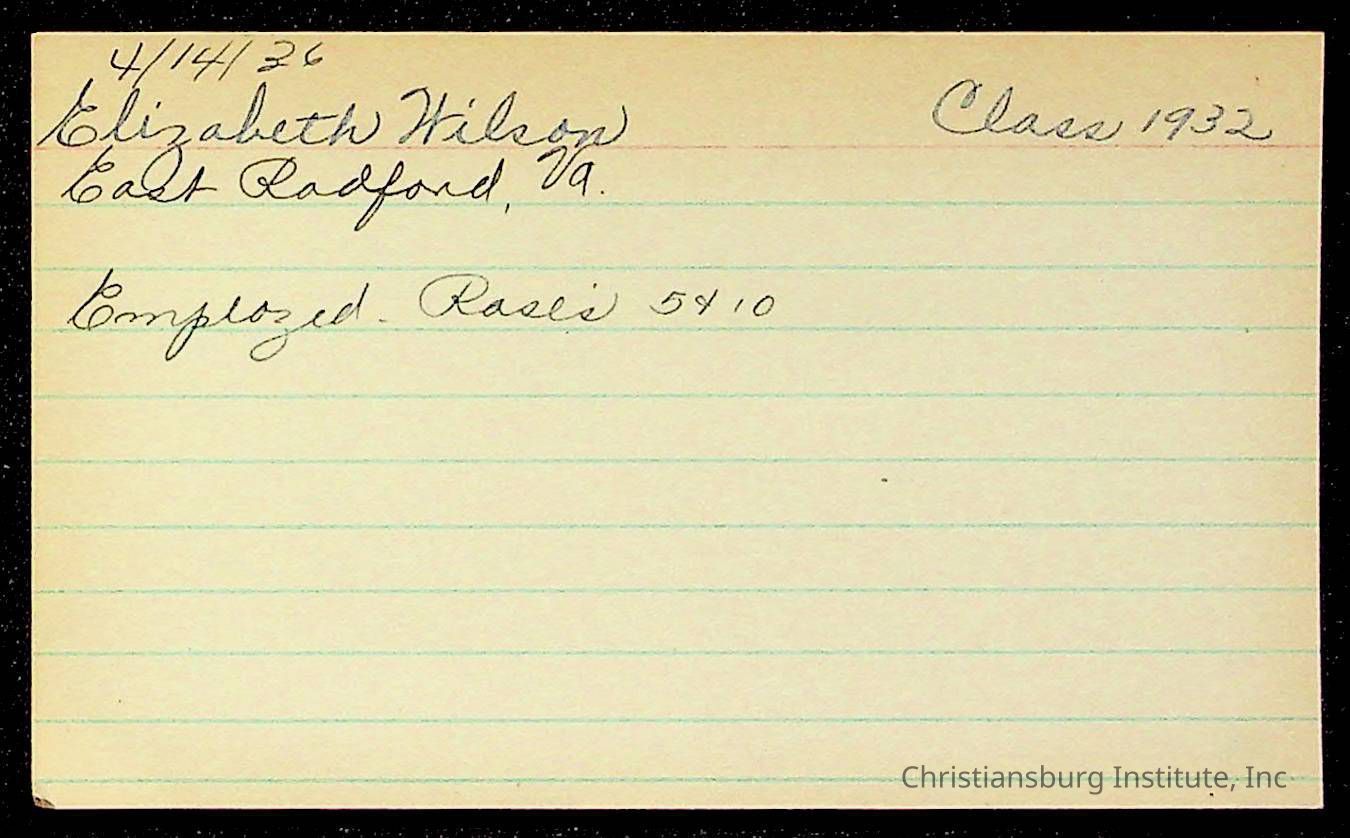 4/14/36
Elizabeth Wilson Class 1932
East Radford, Va.
Employed - Rose's 5 & 10
Christiansburg Institute, Inc